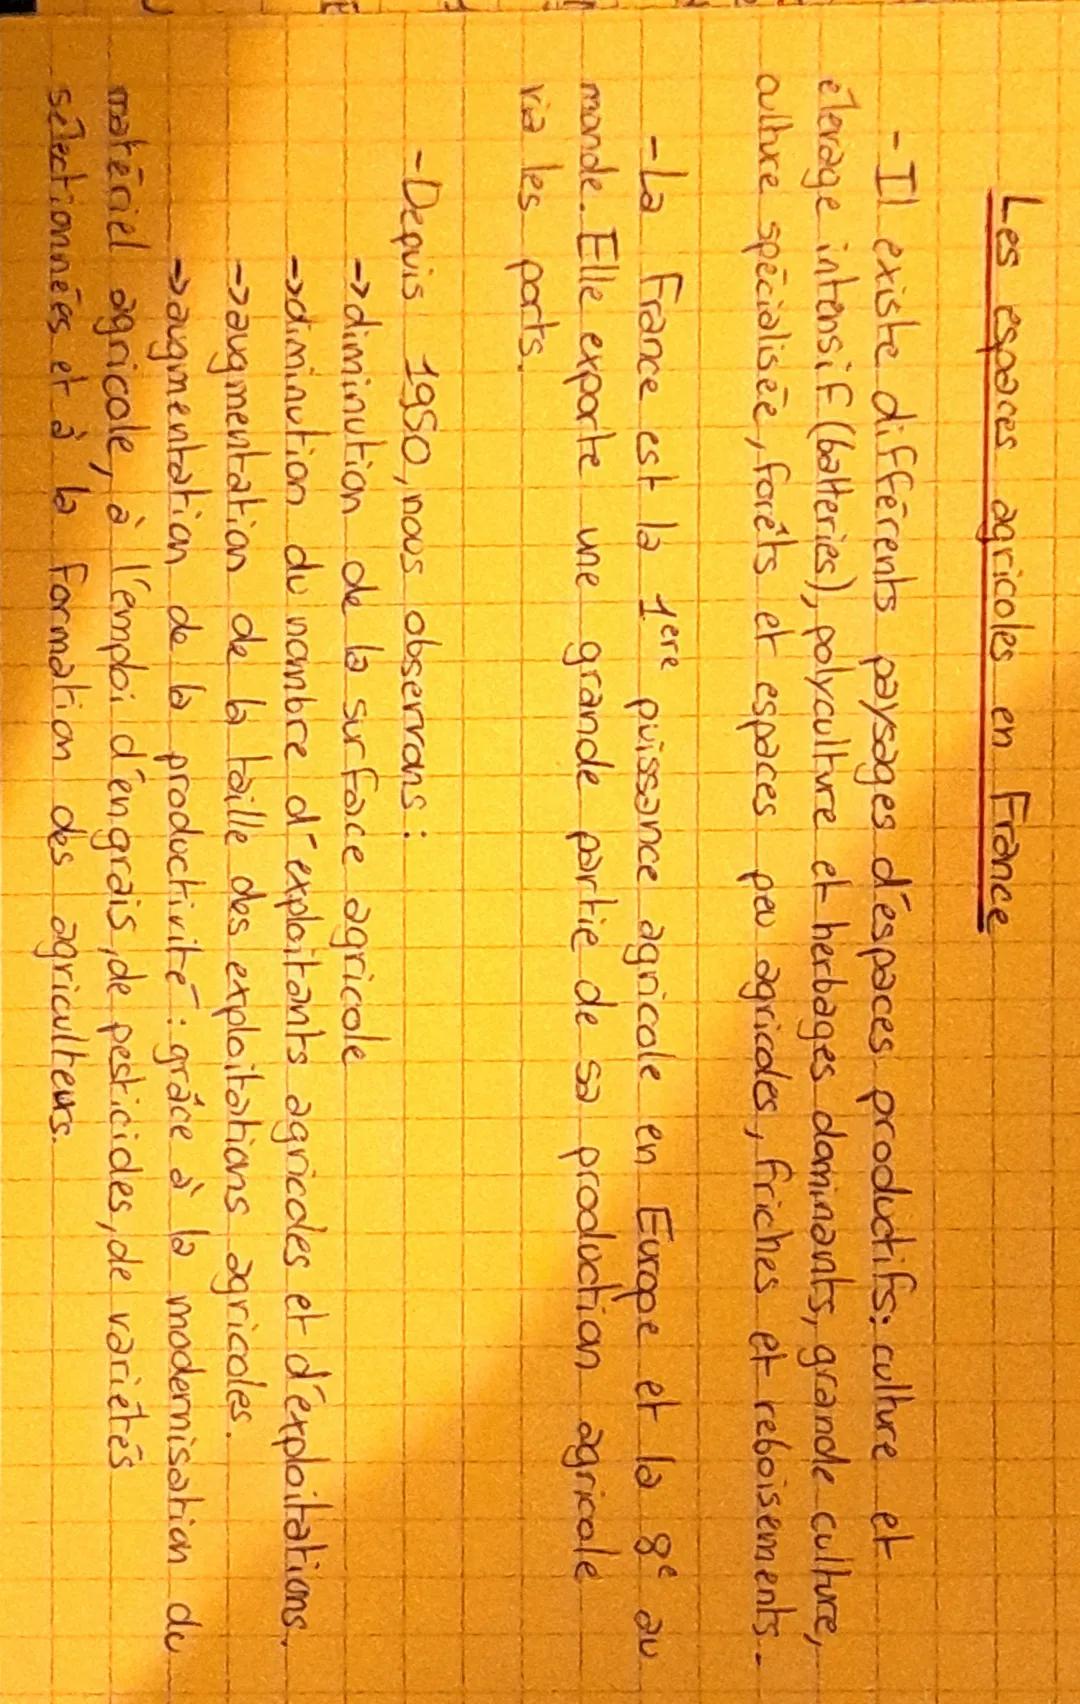 Les espaces agricoles en France
- Il existe différents paysages d'espaces productifs: culture et
élevage intensif (batteries), polyculture et herbages dominants, grande culture,
culture spécialisée, forêts et espaces peu agricoles, friches et reboisements.
- La France est la 1ère puissance agricole en Europe et la 8e au
monde. Elle exporte une grande partie de sa production agricole
via les ports.
- Depuis 1950, nous observons :
→ diminution de la surface agricole
→ diminution du nombre d'exploitants agricoles et d'exploitations.
→ augmentation de la taille des exploitations agricoles.
→ augmentation de la productivité : grâce à la modernisation du
matériel agricole, à l'emploi d'engrais, de pesticides, de variétés
sélectionnées et à la formation des agriculteurs.